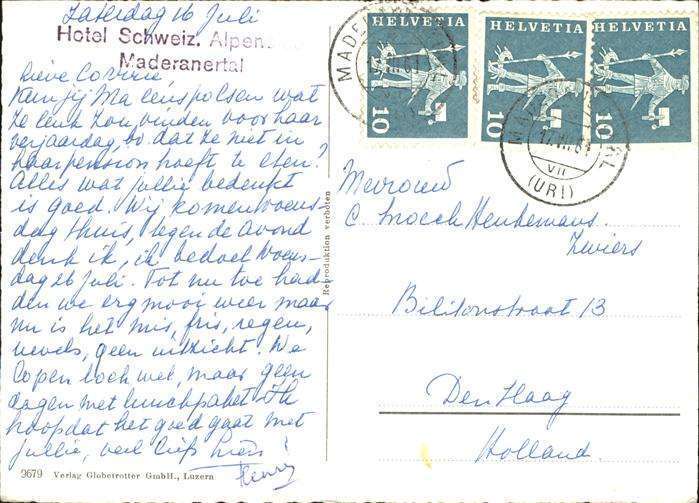 Zaterdag 16 Juli
Hotel Schweiz. Alpen
Maderanertal
Lieve Corrie
Kun jij Ma eens polsen wat
ze leuk zou vinden voor haar
verjaardag, bv. dat ze niet in
haar pension hoeft te eten?
Alles wat jullie bedenkt
is goed. Wij komen woens-
dag thuis, tegen de avond
denk ik, ik bedoel woens-
dag 26 juli. Tot nu toe had-
den we erg mooi weer maar
nu is het mis, fris, regen,
nevels, geen uitzicht. We
lopen toch wel, maar geen
dagen met lunchpaket. Ik
hoop dat het goed gaat met
jullie, veel liefs
Henny
9679 Verlag Globetrotter GmbH., Luzern
Reproduktion verboten
HELVETIA
10
HELVETIA
10
HELVETIA
10
VII
(URI)
Mevrouw
C. Snoeck Henkemans.
Zwiers
Bilitonstraat 13
Den Haag
Holland.